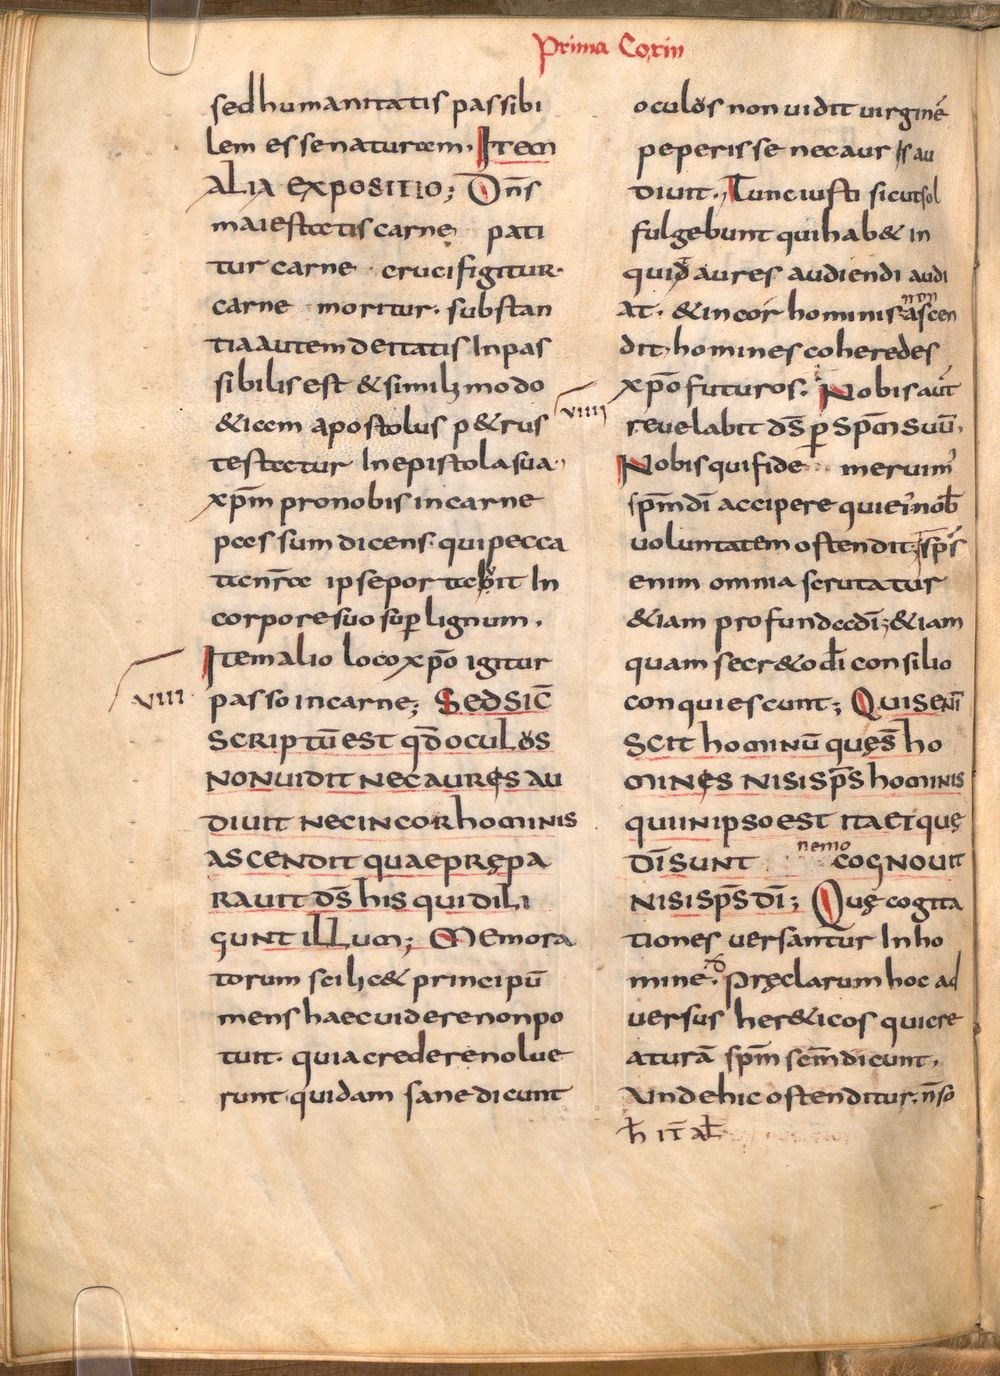 Prima Corin
sed humanitatis passibi
lem esse naturam. Item
alia expositio; Dn̄s
maiestatis carne pati
tur carne crucifigitur.
carne moritur. substan
tia autem deitatis Inpas
sibilis est & simili modo
& iam apostolus p&rus
testatur In epistola sua.
xp̄m pro nobis in carne
passum dicens. qui pecca
ta nr̄a ipse portabit In
corpore suo sup lignum.
Item alio loco xp̄o igitur
VIII
passo in carne; Sed sic̄
scriptū est qd̄ oculos
non uidit nec aures au
diuit nec in cor hominis
ascendit quae prępa
rauit ds̄ his qui dili
gunt illum; Memora
torum scilic& principū
mens haec uidere non po
tuit. quia credere nolue
runt. quidam sane dicunt
oculos non uidit uirginē
peperisse nec auris au
diuit. Tunc iusti sicut sol
fulgebunt qui hab& in
quid aures audiendi audi
at. & in cor hominis non ascen
dit. homines coheredes
xp̄o futuros. Nobis aut̄
VIIII
reuelabit ds̄ p sp̄m suū.
Nobis qui fide meruim̄
sp̄m dī accipere qui ei in nob̄
uoluntatem ostendit; sp̄s
enim omnia scrutatur
&iam profunda dī; &iam
quam secr&o dī consilio
conquiescunt; Quis enī
scit hominū quęs̄ ho
minęs nisi sp̄s hominis
qui in ipso est ita et quę
dī sunt nemo cognouit
nisi sp̄s dī; Quę cogita
tiones uersantur In ho
mine. Pręclarum hoc ad
uersus her&icos qui cre
aturā sp̄m sc̄m dicunt.
Unde hic ostenditur. n̄ so